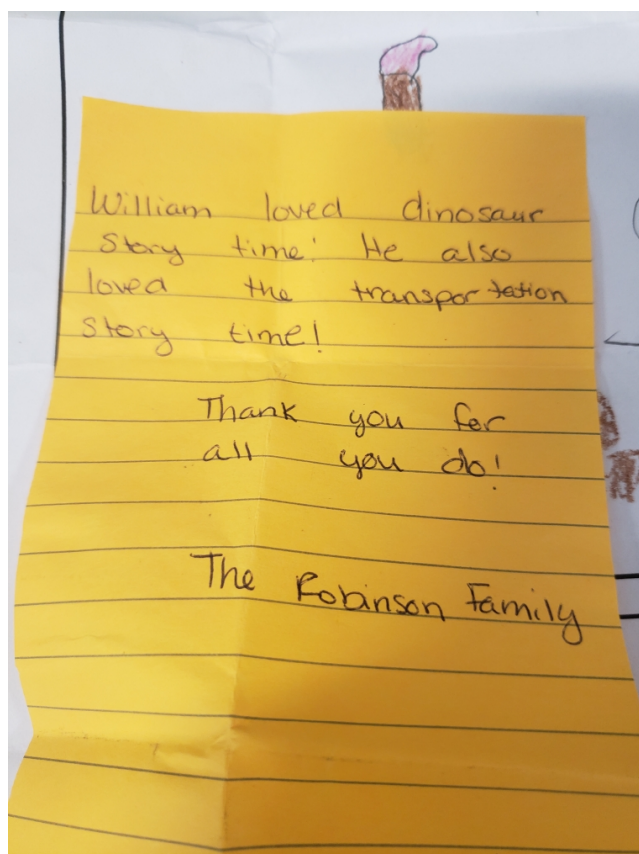 William loved dinosaur
story time! He also
loved the transportation
story time!
Thank you for
all you do!
The Robinson Family